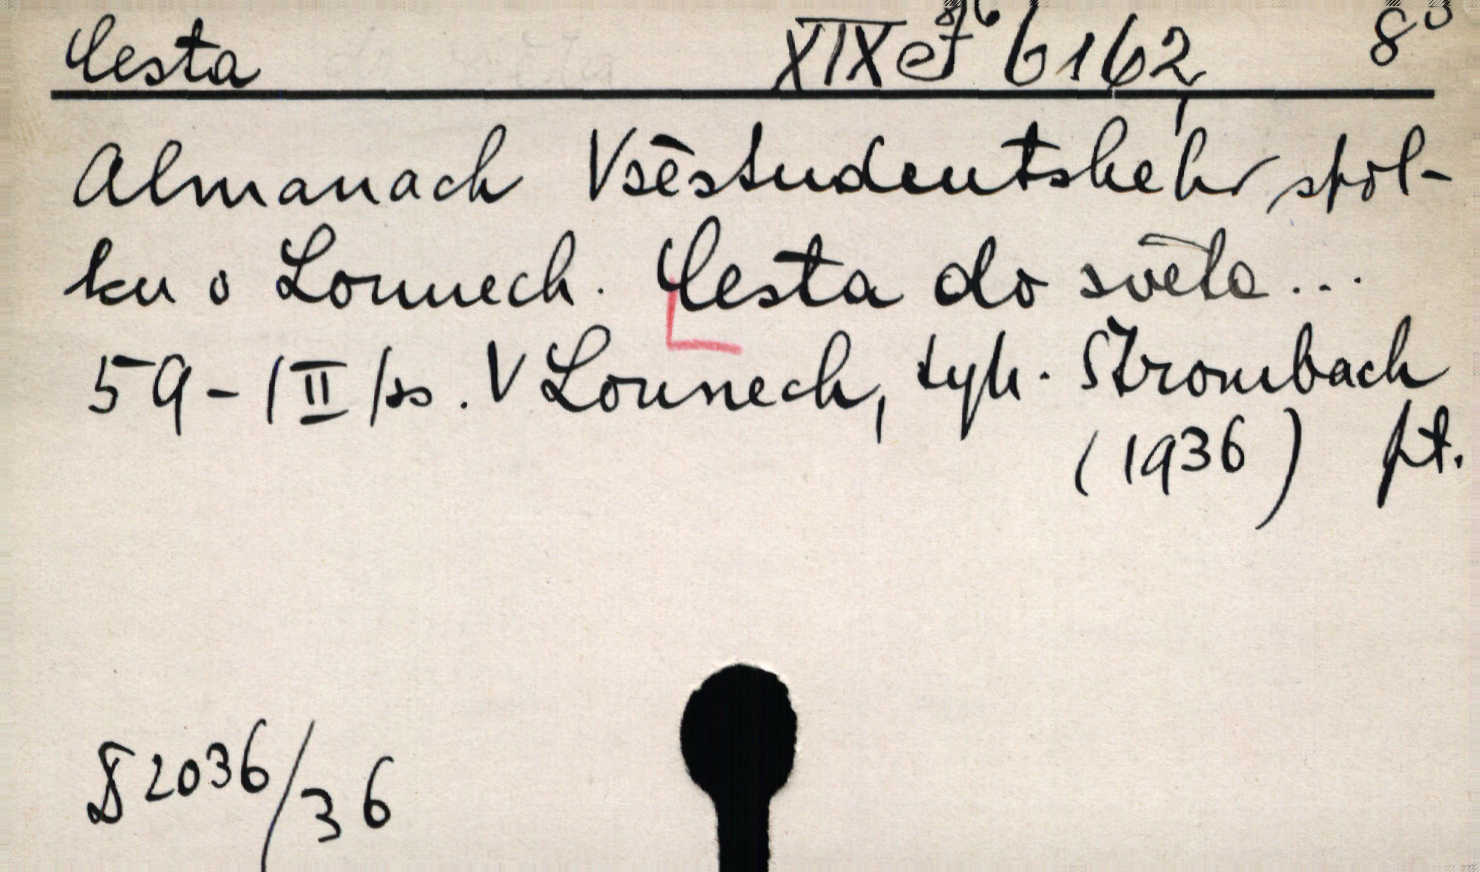 Cesta XIX J 6162 8°
Almanach Všestudentského spol-
ku v Lounech. Cesta do světa...
59-|II|ss. V Lounech, typ. Strombach
(1936) pt.
2036/36